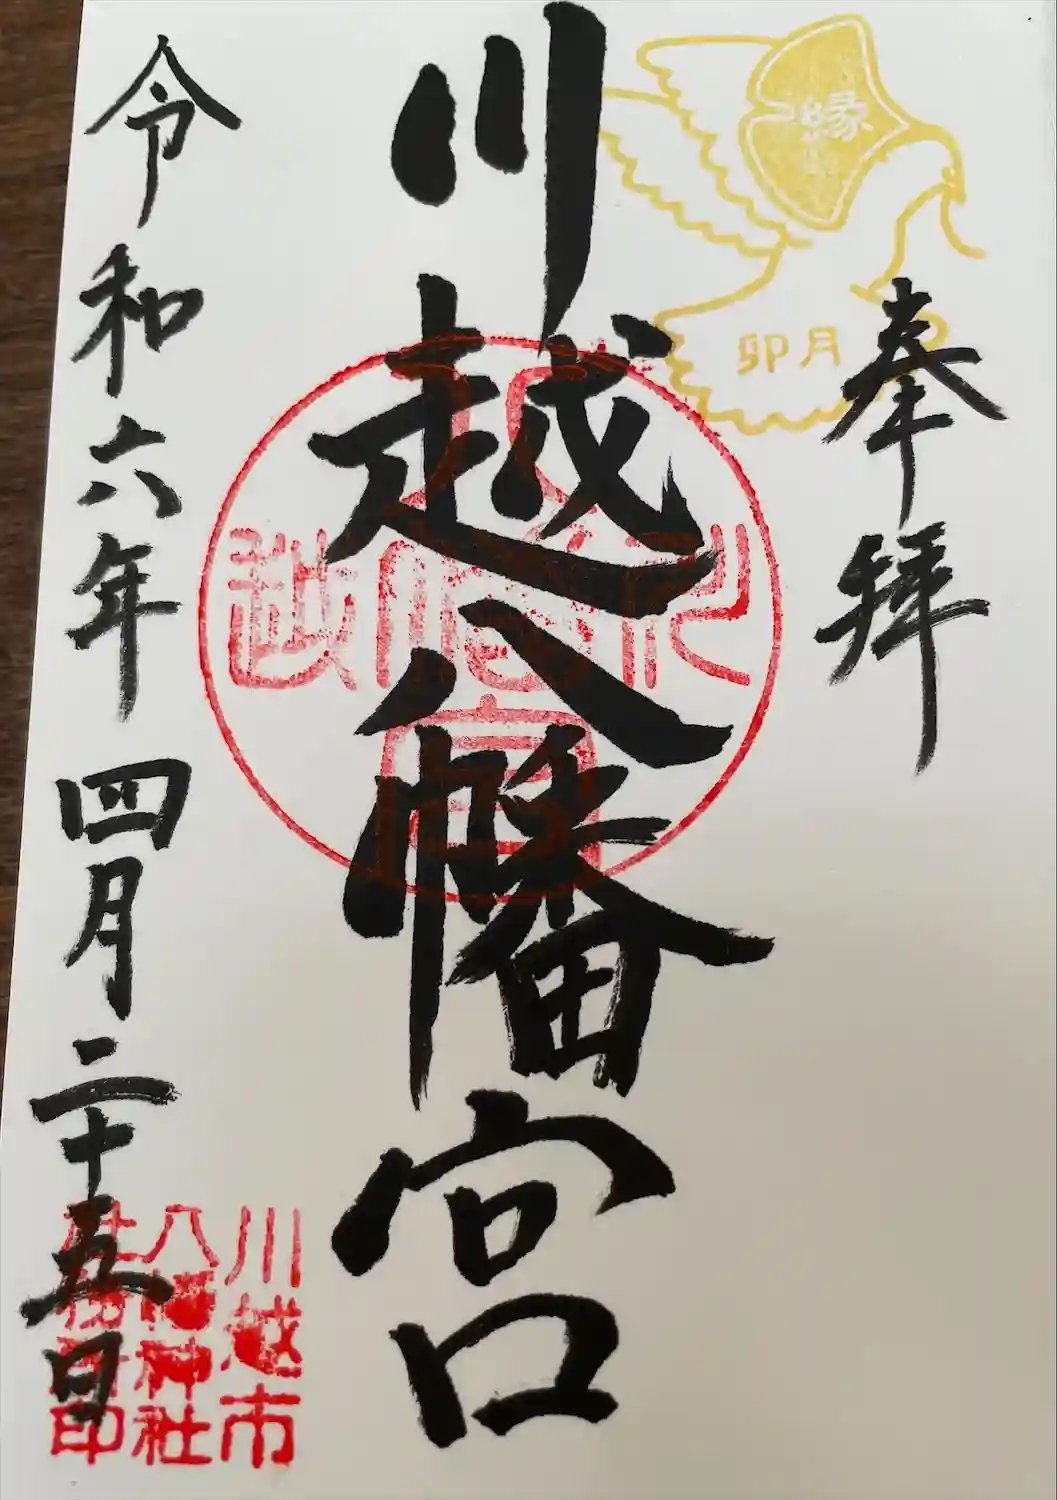 奉拝
縁
卯月
川越八幡宮
令和六年四月二十五日
川越市
八幡神社
社務所印